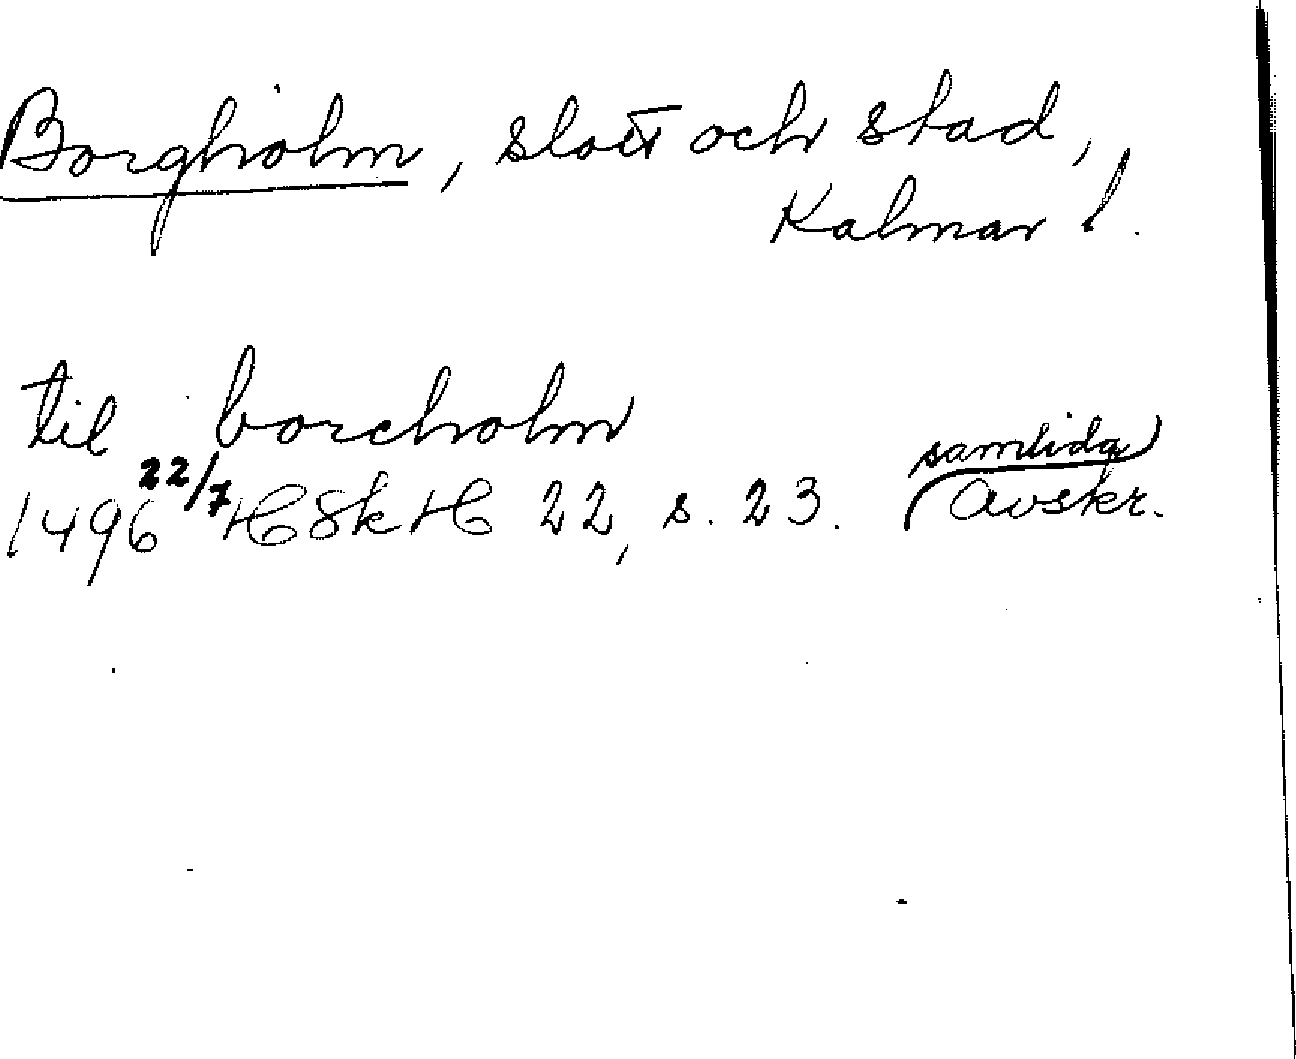 Borgholm, slott och stad,
Kalmar l.
til borcholm
1496 22/7 HSkH 22, s. 23. samtida avskr.